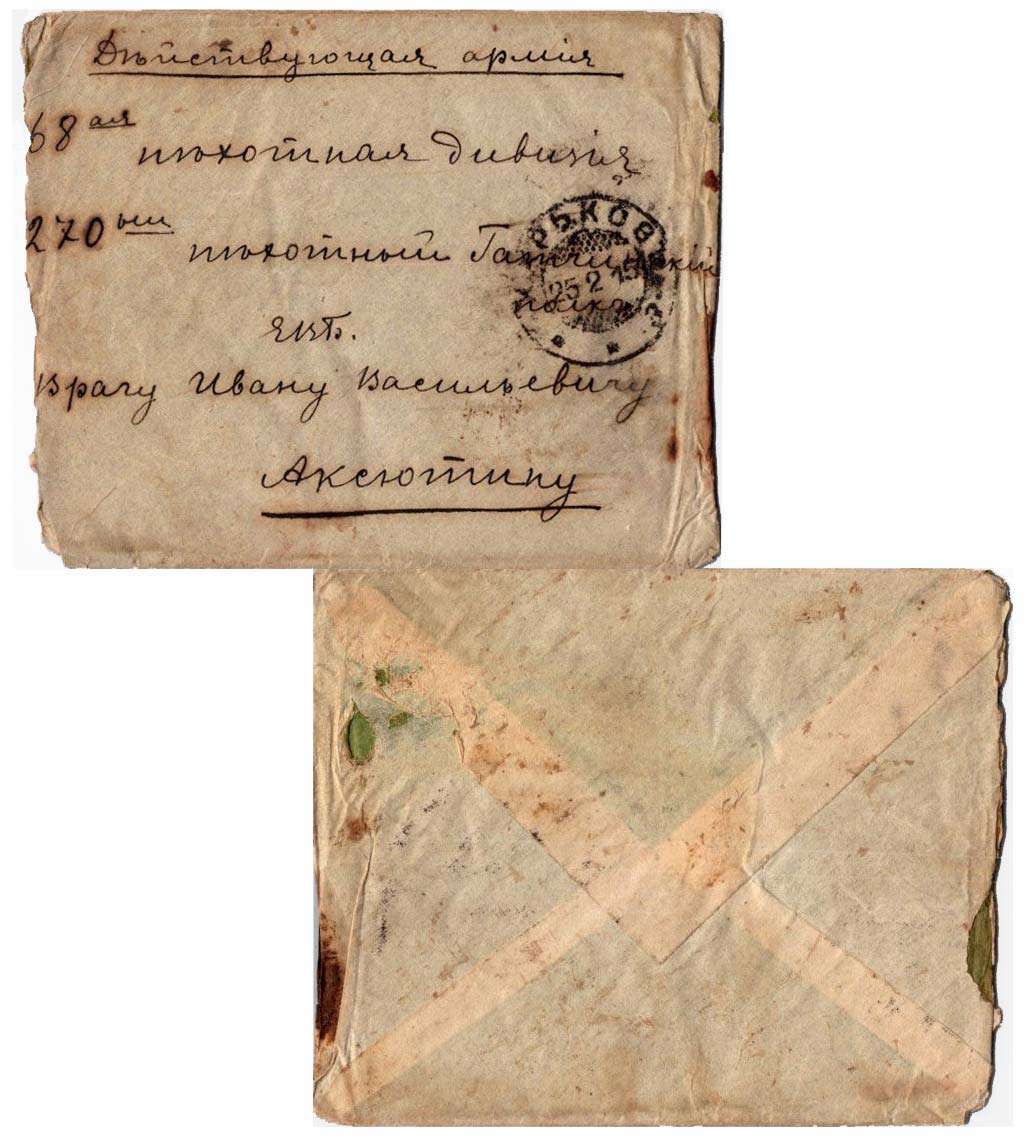 Дѣйствующая армія
68 ая пѣхотная дивизія
270 ый пѣхотный Гатчинскій
полкъ
ЕВБ.
Врачу Ивану Васильевичу
Аксютину
ХАРЬКОВЪ
25 2 15